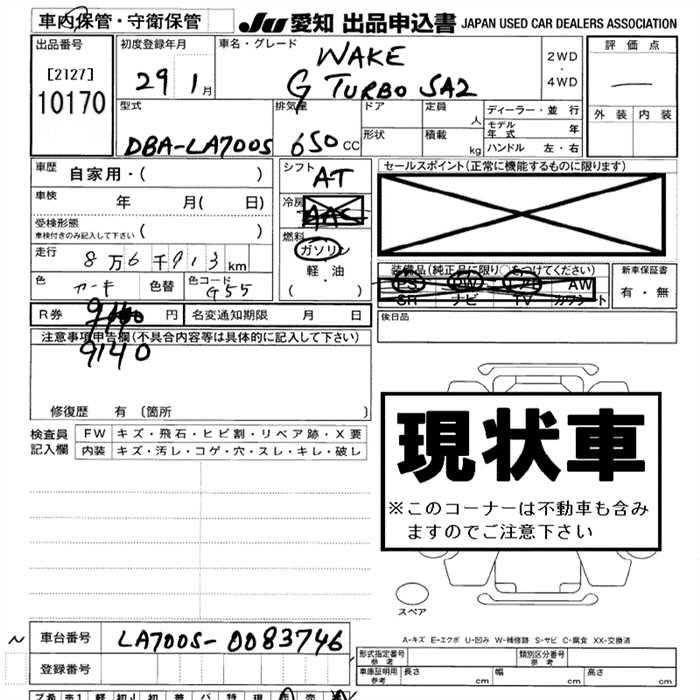 車内保管・守衛保管
JU 愛知 出品申込書 JAPAN USED CAR DEALERS ASSOCIATION
出品番号
[2127]
10170
初度登録年月
29 1月
車名・グレード
WAKE
G TURBO SA2
2WD
・
4WD
評価点
―
外装 内装
型式
DBA-LA700S
排気量
650 CC
ドア
定員
人
形状
積載
kg
ディーラー・並行
モデル年式 年
ハンドル 左・右
車歴 自家用・( )
車検 年 月( 日)
受検形態
車検付きのみ記入して下さい ( )
走行 8万6千913km
色 カーキ 色替
色コード G55
シフト AT
冷房 AAC
燃料
ガソリン
軽・油
( ・ )
セールスポイント(正常に機能するものに限ります)
装備品(純正品に限り○をつけてください)
PS PW AW
SR ナビ TV カワシート
新車保証書
有・無
後日品
R券 円
9140
名変通知期限 月 日
注意事項申告欄(不具合内容等は具体的に記入して下さい)
修復歴 有 〔箇所 〕
検査員記入欄
FW キズ・飛石・ヒビ割・リペア跡・X要
内装 キズ・汚レ・コゲ・穴・スレ・キレ・破レ
現状車
※このコーナーは不動車も含み
ますのでご注意下さい
スペア
A-キズ E-エクボ U-凹み W-補修跡 S-サビ C-腐食 XX-交換済
車台番号 LA700S-0083746
登録番号
形式指定番号 参考
類別区分番号 参考
車庫証明用 参考 長さ cm 幅 cm 高さ cm